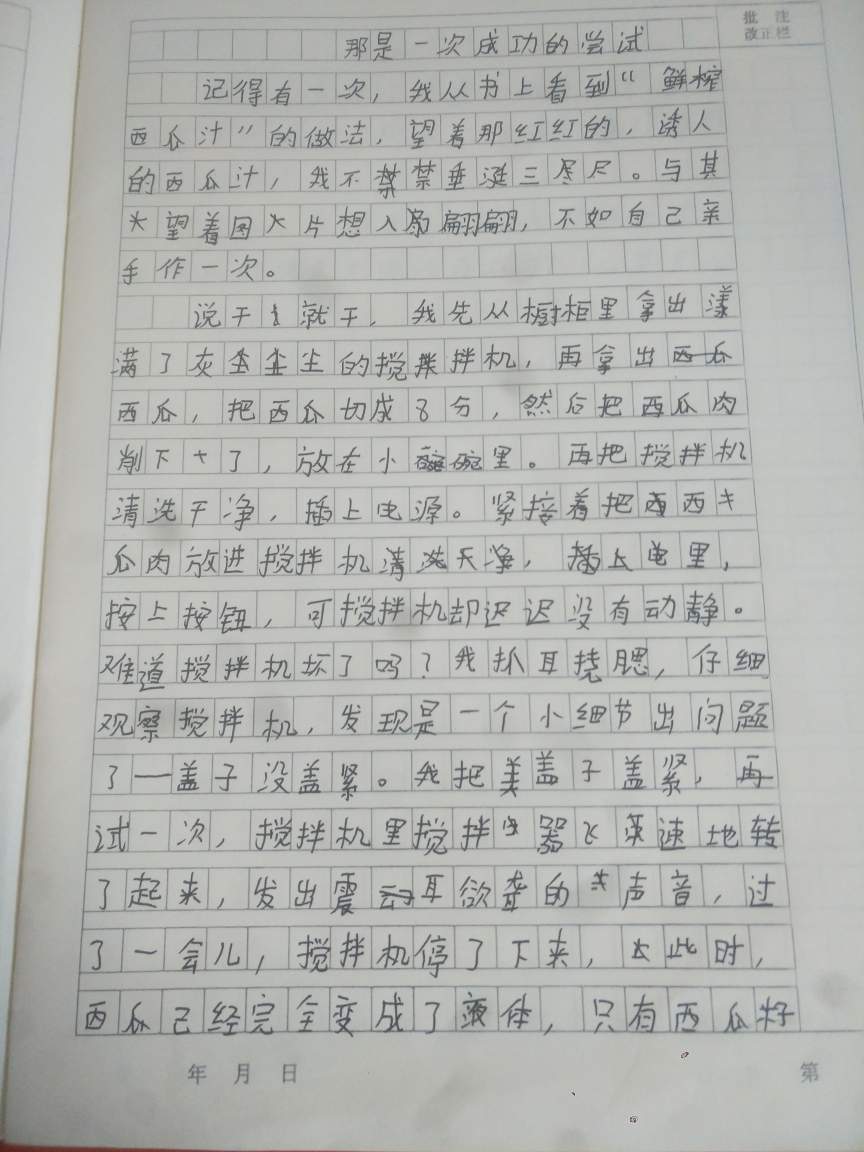 批 注
改正栏
那是一次成功的尝试
记得有一次，我从书上看到“鲜榨
西瓜汁”的做法，望着那红红的，诱人
的西瓜汁，我不禁垂涎三尽尺。与其
望着图片想入翩翩，不如自己亲
手作一次。
说干就干，我先从橱柜里拿出漾
满了灰尘的搅拌机，再拿出
西瓜，把西瓜切成8分，然后把西瓜肉
削下了，放在小碗里。再把搅拌机
清洗干净，插上电源。紧接着把西
瓜肉放进搅拌机清洗天净，插上电里，
按上按钮，可搅拌机却迟迟没有动静。
难道搅拌机坏了吗？我抓耳挠腮，仔细
观察搅拌机，发现是一个小细节出问题
了—盖子没盖紧。我把盖子盖紧，再
试一次，搅拌机里搅拌器飞速地转
了起来，发出震耳欲聋的声音，过
了一会儿，搅拌机停了下来，此时，
西瓜已经完全变成了液体，只有西瓜籽
年 月 日
第